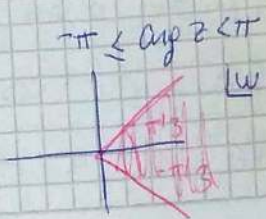 -π ≤ arg z < π
w
π/3
-π/3